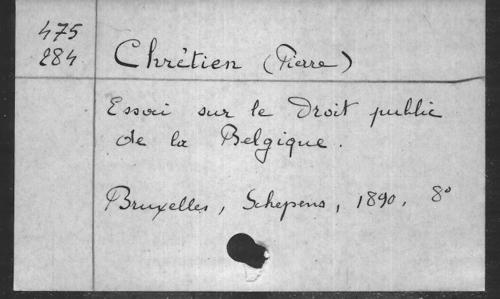 475
284
Chrétien (Pierre)
Essai sur le Droit public
de la Belgique.
Bruxelles, Schepens, 1890, 8°